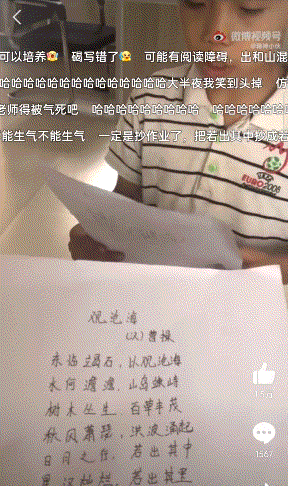 微博视频号
可以培养 碣写错了😂 可能有阅读障碍,出和山混
哈哈哈哈哈哈哈哈哈哈哈哈哈哈大半夜我笑到头掉 仿
老师得被气死吧 哈哈哈哈哈哈哈哈哈 哈哈哈哈哈
能生气不能生气 一定是抄作业了,把若出其中抄成若
EURO2008
观沧海
曹操
东临碣石,以观沧海
水何澹澹,山岛竦峙
树木丛生 百草丰茂
秋风萧瑟,洪波涌起
日月之行,若出其中
星汉灿烂,若出其里
1567